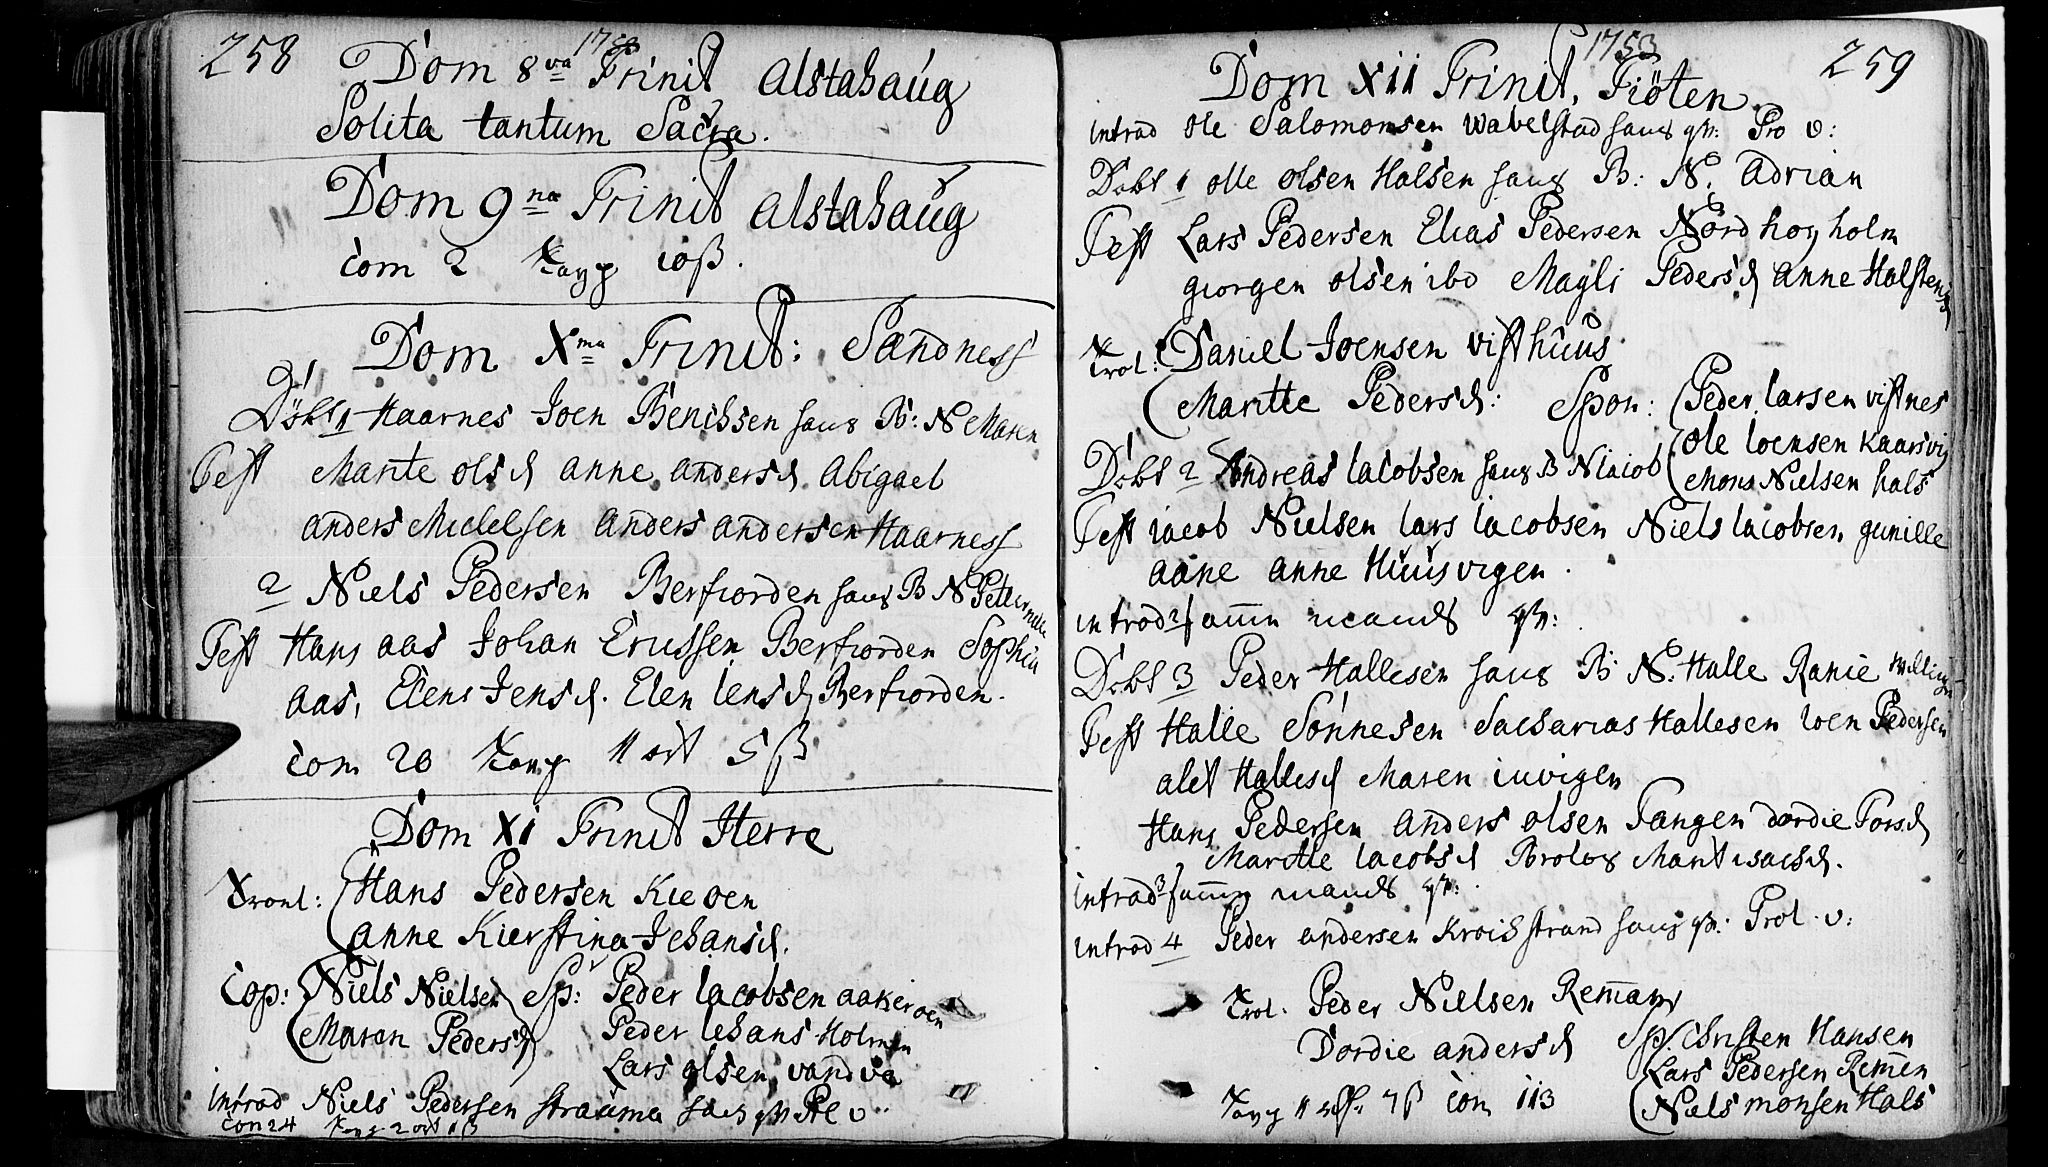 258
Dom 8va Trinit Alstahaug
Solita tantum Sacra.
Dom 9na Trinit Alstahaug
Com 2 10 ß.
Dom Xma Trinit: Sandness
Döbt 1 Haarnes Joen Benthsen hans B: N Maren
Test Marite Olsd Anne Andersd Abigael
Anders Michelsen Anders Andersen Haarness
2 Niels Pedersen Berfiorden hans B N
Test Hans Aas Johan Ericssen Berfiorden Sophia
Aas, Elen Jensd. Elen Iensd Berfiorden.
Com 20 11 ort 5 ß
Dom XI Trinit Herre
Hans Pedersen Kieoen
Anne Kierstina Johansd.
Cop: Niels Nielsen Sp: Peder Iacobsen Aakeroen
Maren Pedersd Peder Iohans Holmen
Lars Olsen Vandva
Introd Niels Pedersen Strauma hans
Com 24 2 ort
1753
259
Dom XII Trinit, Tiöten
Introd Ole Salomonsen Wabelstad hans qv: Pro v:
Dobt 1 Olle Olsen Halsen hans B: N. Adrian
Test Lars Pedersen Elias Pedersen Nord hoyholm
Giorgen Olsen ibd Magli Pedersd Anne
Trol: Daniel Joensen Visthuus
Maritte Pedersd: Spon: Peder Larsen Vistnes
Ole Ioensen Kaarsvig
Dobt 2 Andreas Iacobsen hans B N Iacob Mons Nielsen Hals
Test Iacob Nielsen Lars Iacobsen Niels Iacobsen Gunille
Aane Anne Huusvigen.
introd 2 samme mands qv:
Dobt 3 Peder Hallesen hans B N: Halle Ranie
Test Halle Sönnesen Sacharias Hallesen Ioen Pedersen
Alet Hallesd Maren
Hans Pedersen Anders Olsen Tangen Dordie Torsd
Maritte Iacobsd Marit Isacsd.
introd 3 samme mands qv:
introd 4 Peder Andersen hans qv: Prol. v:
Trol. Peder Nielsen
Dordie Andersd Sp: Christen Hansen
Lars Pedersen Remen
7 ß Com 113 Niels Monsen Hals